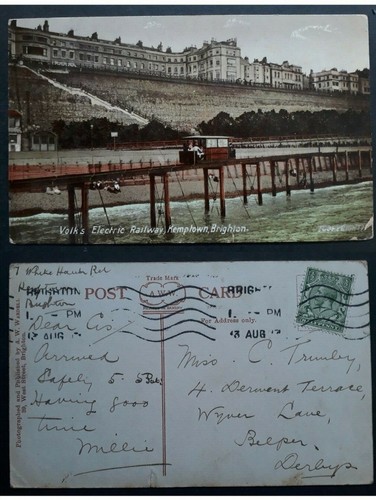 Volk's Electric Railway, Kemptown, Brighton.
7 White Hawk Rd
Brighton
Trade Mark
A.W.W.
POST CARD
For Address only.
BRIGHTON
1 PM
13 AUG
BRIGHT
1 PM
13 AUG
Photographed and Published by A. W. Wardell,
West Street, Brighton
Dear Cis
Arrived
Safely 5.5
Having good
time
Millie
Miss C Trumby,
4. Derwent Terrace
Wyver Lane,
Belper,
Derbys